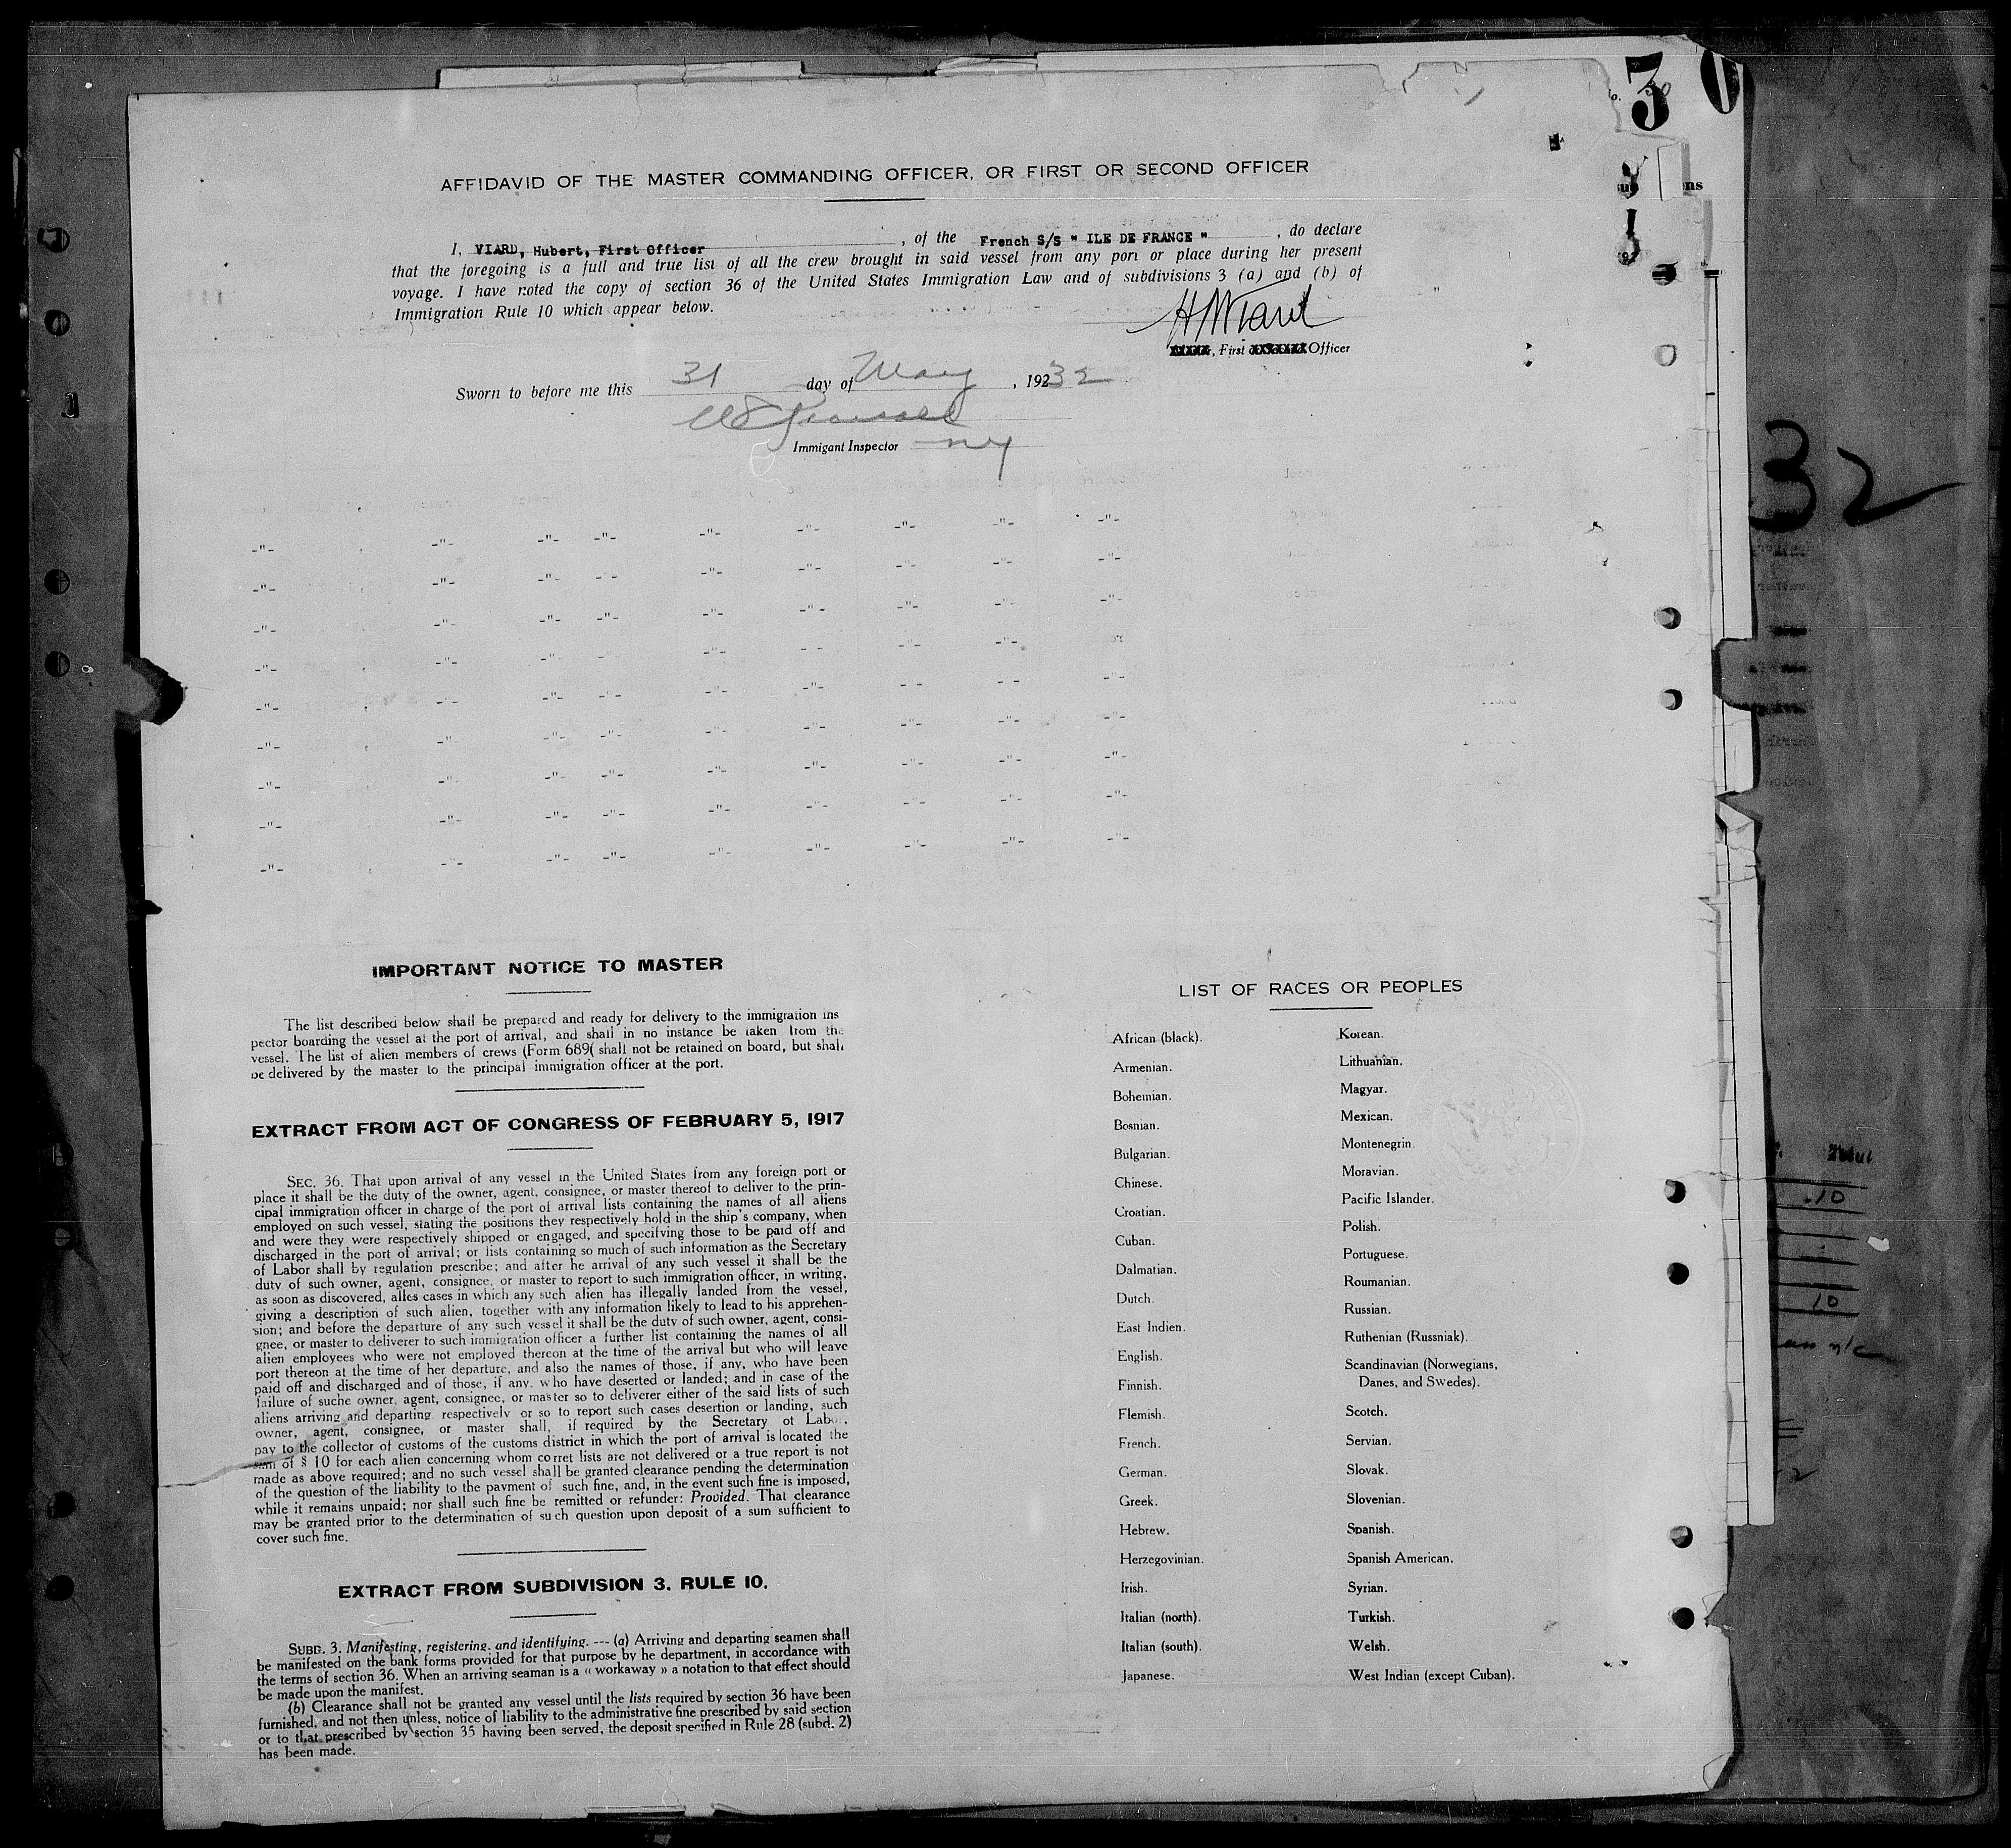 30
AFFIDAVID OF THE MASTER COMMANDING OFFICER, OR FIRST OR SECOND OFFICER
I, VIARD, Hubert, First Officer, of the French S/S " ILE DE FRANCE ", do declare
that the foregoing is a full and true list of all the crew brought in said vessel from any port or place during her present
voyage. I have noted the copy of section 36 of the United States Immigration Law and of subdivisions 3 (a) and (b) of
Immigration Rule 10 which appear below.
H Viard
XXXXX, First XXXXXXX Officer
Sworn to before me this 31 day of May, 19232
Immigant Inspector NY
32
-"- -"- -"- -"- -"- -"- -"- -"- -"-
-"- -"- -"- -"- -"- -"- -"- -"- -"-
-"- -"- -"- -"- -"- -"- -"- -"- -"-
-"- -"- -"- -"- -"- -"- -"- -"-
-"- -"- -"- -"- -"- -"- -"- -"- -"-
-"- -"- -"- -"- -"- -"- -"- -"- -"-
-"- -"- -"- -"- -"- -"- -"- -"- -"-
-"- -"- -"- -"- -"- -"- -"- -"- -"-
-"- -"- -"- -"- -"- -"- -"- -"- -"-
IMPORTANT NOTICE TO MASTER
The list described below shall be prepared and ready for delivery to the immigration ins
pector boarding the vessel at the port of arrival, and shall in no instance be taken from the
vessel. The list of alien members of crews (Form 689( shall not be retained on board, but shall
be delivered by the master to the principal immigration officer at the port.
EXTRACT FROM ACT OF CONGRESS OF FEBRUARY 5, 1917
SEC. 36. That upon arrival of any vessel in the United States from any foreign port or
place it shall be the duty of the owner, agent, consignee, or master thereof to deliver to the prin-
cipal immigration officer in charge of the port of arrival lists containing the names of all aliens
employed on such vessel, stating the positions they respectively hold in the ship's company, when
and were they were respectively shipped or engaged, and specifying those to be paid off and
discharged in the port of arrival; or lists containing so much of such information as the Secretary
of Labor shall by regulation prescribe; and after he arrival of any such vessel it shall be the
duty of such owner, agent, consignee, or master to report to such immigration officer, in writing,
as soon as discovered, alles cases in which any such alien has illegally landed from the vessel,
giving a description of such alien, together with any information likely to lead to his apprehen-
sion; and before the departure of any such vessel it shall be the duty of such owner, agent, consi-
gnee, or master to deliverer to such immigration officer a further list containing the names of all
alien employees who were not employed thereon at the time of the arrival but who will leave
port thereon at the time of her departure, and also the names of those, if any, who have been
paid off and discharged and of those, if any, who have deserted or landed; and in case of the
failure of suche owner, agent, consignee, or master so to deliverer either of the said lists of such
aliens arriving and departing respectively or so to report such cases desertion or landing, such
owner, agent, consignee, or master shall, if required by the Secretary of Labor,
pay to the collector of customs of the customs district in which the port of arrival is located the
sum of $ 10 for each alien concerning whom corret lists are not delivered or a true report is not
made as above required; and no such vessel shall be granted clearance pending the determination
of the question of the liability to the payment of such fine, and, in the event such fine is imposed,
while it remains unpaid; nor shall such fine be remitted or refunder: Provided. That clearance
may be granted prior to the determination of such question upon deposit of a sum sufficient to
cover such fine.
EXTRACT FROM SUBDIVISION 3. RULE 10.
SUBD. 3. Manifesting, registering, and identifying. --- (a) Arriving and departing seamen shall
be manifested on the bank forms provided for that purpose by he department, in accordance with
the terms of section 36. When an arriving seaman is a « workaway » a notation to that effect should
be made upon the manifest.
(b) Clearance shall not be granted any vessel until the lists required by section 36 have been
furnished, and not then unless, notice of liability to the administrative fine prescribed by said section
or to that prescribed by section 35 having been served, the deposit specified in Rule 28 (subd. 2)
has been made.
LIST OF RACES OR PEOPLES
African (black).
Armenian.
Bohemian.
Bosnian.
Bulgarian.
Chinese.
Croatian.
Cuban.
Dalmatian.
Dutch.
East Indien.
English.
Finnish.
Flemish.
French.
German.
Greek.
Hebrew.
Herzegovinian.
Irish.
Italian (north).
Italian (south).
Japanese.
Korean.
Lithuanian.
Magyar.
Mexican.
Montenegrin.
Moravian.
Pacific Islander.
Polish.
Portuguese.
Roumanian.
Russian.
Ruthenian (Russniak).
Scandinavian (Norwegians,
Danes, and Swedes).
Scotch.
Servian.
Slovak.
Slovenian.
Spanish.
Spanish American.
Syrian.
Turkish.
Welsh.
West Indian (except Cuban).
.10
10